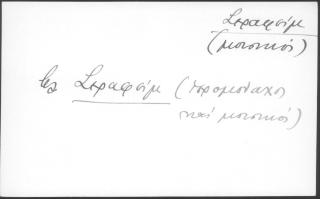 Σεραφείμ
(μουσικός)
βλ Σεραφείμ (ιερομόναχος
καί μουσικός)